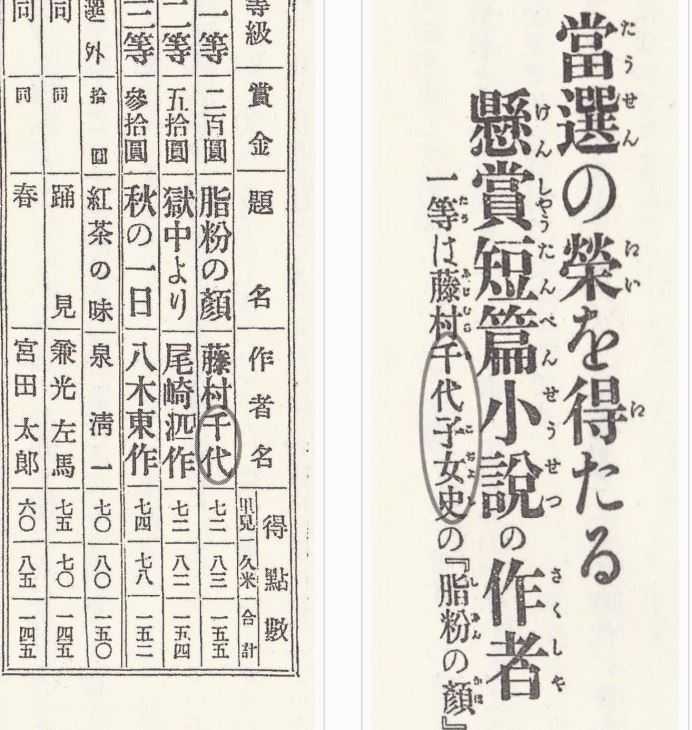 當選の榮を得たる
懸賞短篇小說の作者
一等は藤村千代子女史の『脂粉の顏』
等級 賞金 題名 作者名 得點數
里見 久米 合計
一等 二百圓 脂粉の顏 藤村千代 七二 八三 一五五
二等 五拾圓 獄中より 尾崎泗作 七二 八二 一五四
三等 參拾圓 秋の一日 八木東作 七四 七八 一五二
選外 拾圓 紅茶の味 泉清一 七〇 八〇 一五〇
同 同 踊見 兼光左馬 七五 七〇 一四五
同 同 春 宮田太郎 六〇 八五 一四五